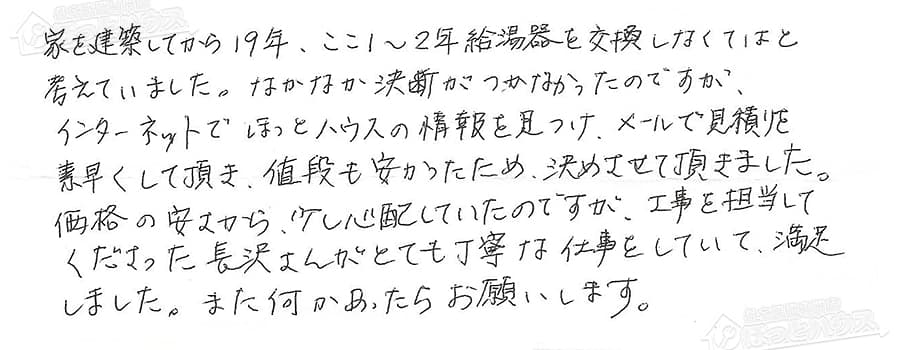 家を建築してから19年、ここ1～2年給湯器を交換しなくてはと
考えていました。なかなか決断がつかなかったのですが、
インターネットでほっとハウスの情報を見つけ、メールで見積りを
素早くして頂き、値段も安かったため、決めさせて頂きました。
価格の安さから、少し心配していたのですが、工事を担当して
くださった長沢さんがとても丁寧な仕事をしていて、満足
しました。また何かあったらお願いします。
ほっとハウス